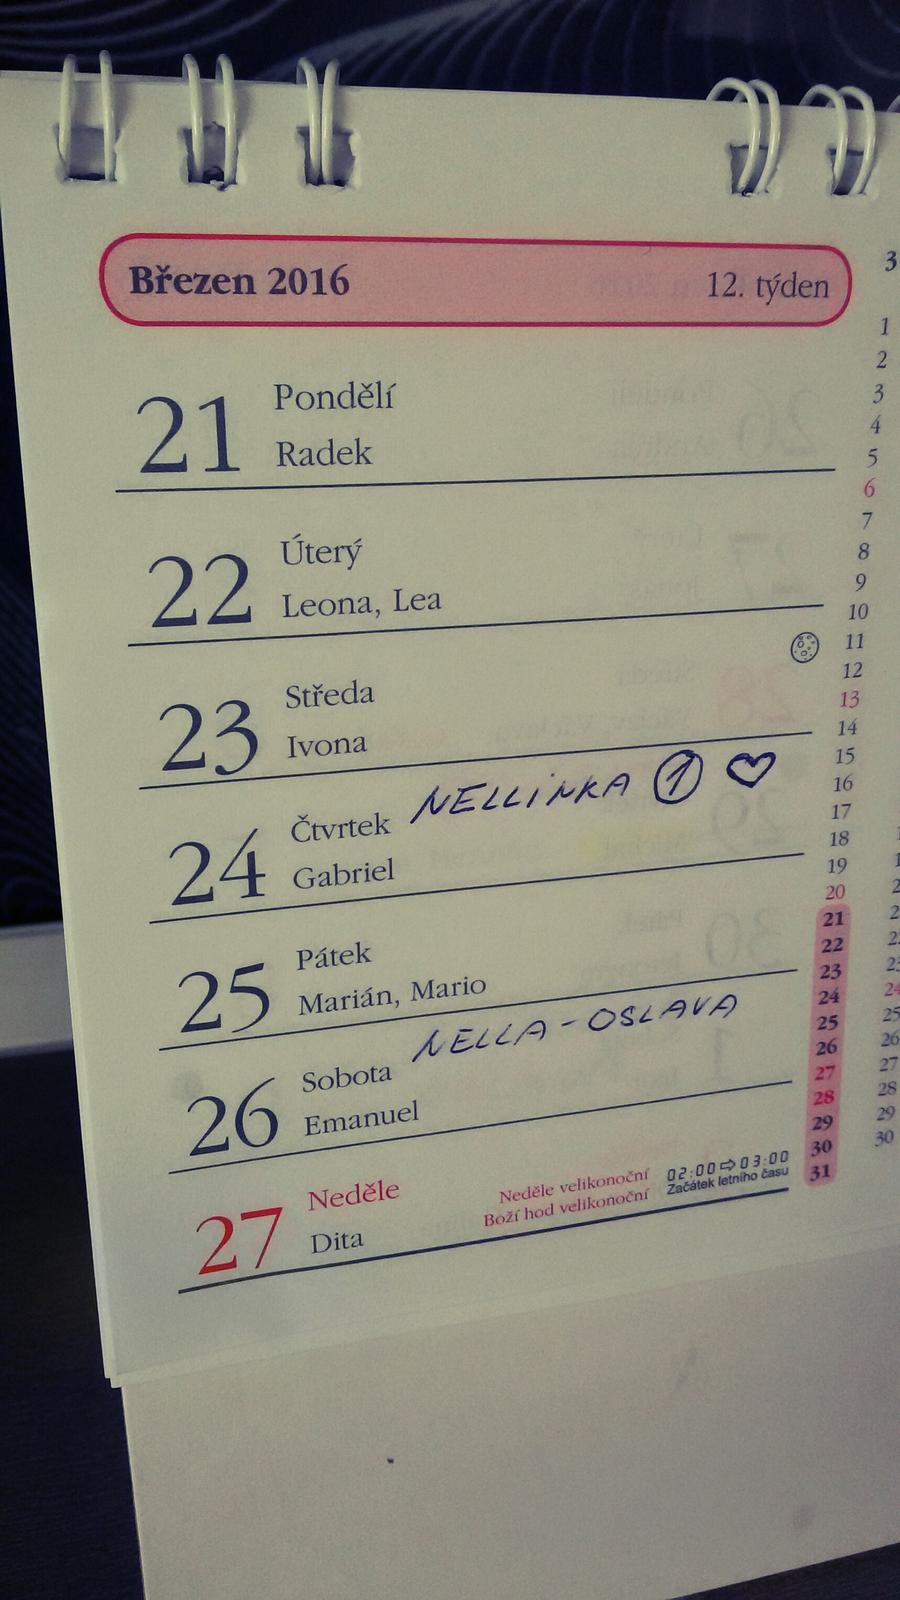 Březen 2016 12. týden
21 Pondělí
Radek
22 Úterý
Leona, Lea
23 Středa
Ivona
24 Čtvrtek NELLINKA 1 ♡
Gabriel
25 Pátek
Marián, Mario
26 Sobota NELLA - OSLAVA
Emanuel
27 Neděle
Dita
Neděle velikonoční
Boží hod velikonoční
02:00⇨03:00
Začátek letního času
3
1
2
3
4
5
6
7
8
9
10
11
12
13
14
15
16
17
18
19
20
21
22
23
24
25
26
27
28
29
30
31
24
25
26
27
28
29
30